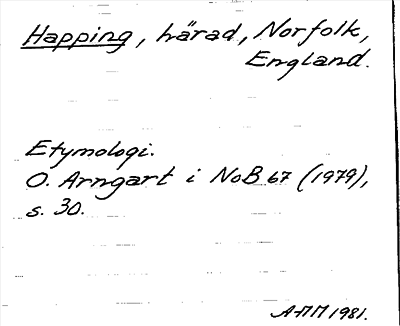 Happing, härad, Norfolk,
England.
Etymologi.
O. Arngart i NoB 67 (1979),
s. 30.
AMM 1981.